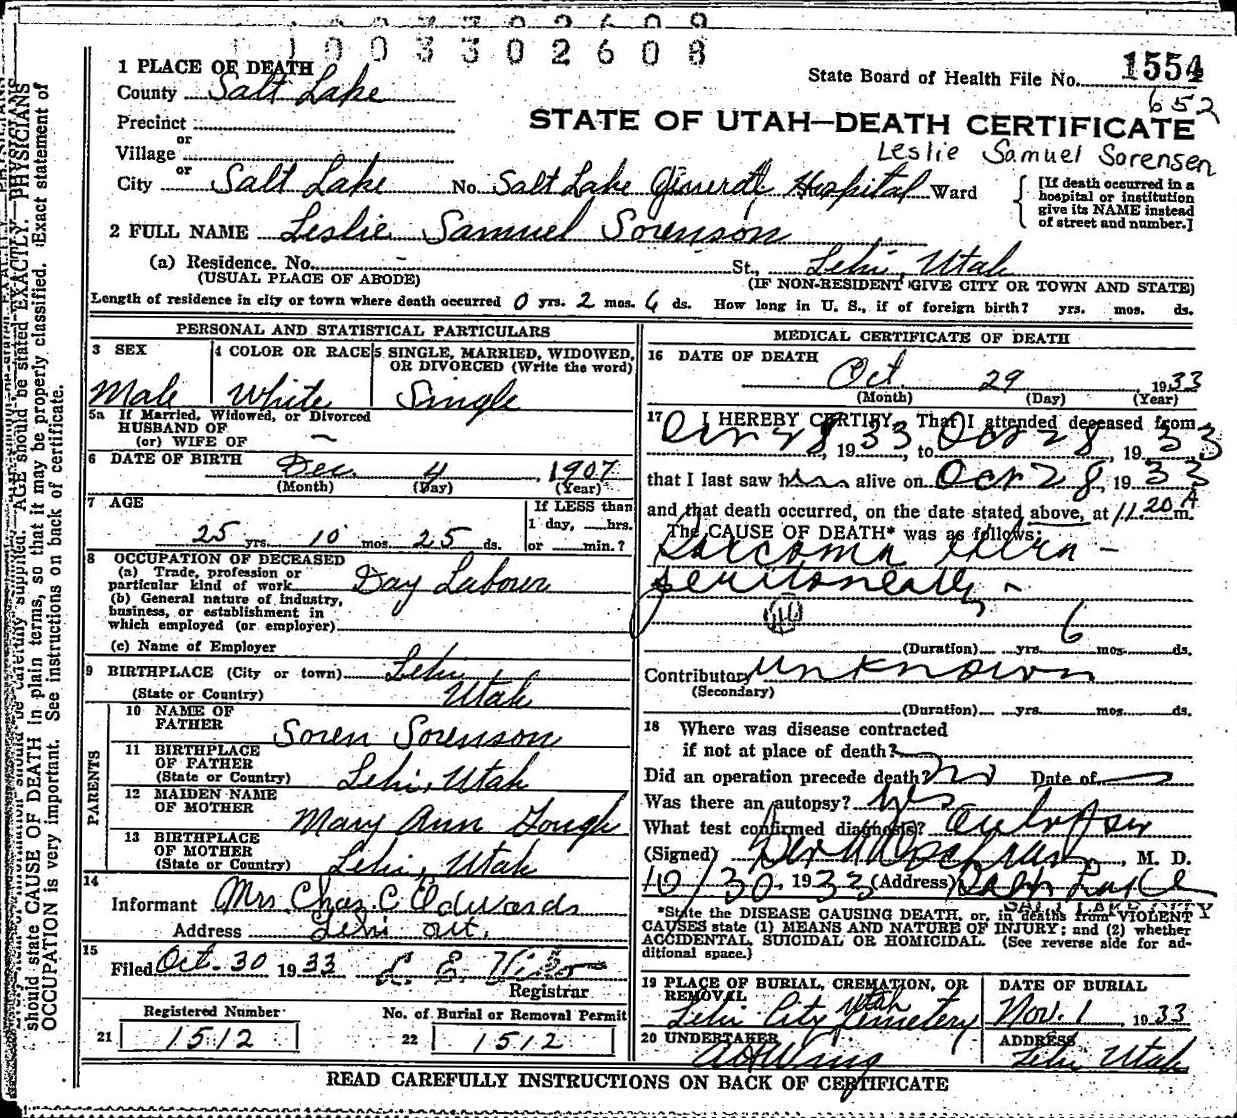 1003302608
1 PLACE OF DEATH
State Board of Health File No. 1554
652
County Salt Lake
Precinct
or
Village
STATE OF UTAH—DEATH CERTIFICATE
Leslie Samuel Sorensen
or
City Salt Lake No. Salt Lake General Hospital Ward
[If death occurred in a
hospital or institution
give its NAME instead
of street and number.]
2 FULL NAME Leslie Samuel Sorenson
(a) Residence. No. - St., Lehi, Utah
(USUAL PLACE OF ABODE) (IF NON-RESIDENT GIVE CITY OR TOWN AND STATE)
Length of residence in city or town where death occurred 0 yrs. 2 mos. 6 ds. How long in U. S., if of foreign birth? yrs. mos. ds.
PERSONAL AND STATISTICAL PARTICULARS
3 SEX
Male
4 COLOR OR RACE
White
5 SINGLE, MARRIED, WIDOWED,
OR DIVORCED (Write the word)
Single
5a If Married, Widowed, or Divorced
HUSBAND OF
(or) WIFE OF
6 DATE OF BIRTH Dec. 4, 1907
(Month) (Day) (Year)
7 AGE
25 yrs. 10 mos. 25 ds.
If LESS than
1 day, hrs.
or min.?
8 OCCUPATION OF DECEASED
(a) Trade, profession or
particular kind of work Day Laborer
(b) General nature of industry,
business, or establishment in
which employed (or employer)
(c) Name of Employer
9 BIRTHPLACE (City or town) Lehi
(State or Country) Utah
PARENTS
10 NAME OF
FATHER Soren Sorenson
11 BIRTHPLACE
OF FATHER
(State or Country) Lehi, Utah
12 MAIDEN NAME
OF MOTHER Mary Ann Gough
13 BIRTHPLACE
OF MOTHER
(State or Country) Lehi, Utah
14
Informant Mrs Chas. C. Edwards
Address Lehi Ut.
15
Filed Oct. 30 1933
Registrar
Registered Number No. of Burial or Removal Permit
21 1512 22 1512
MEDICAL CERTIFICATE OF DEATH
16 DATE OF DEATH
Oct. 29, 1933
(Month) (Day) (Year)
17 I HEREBY CERTIFY, That I attended deceased from
28, 1933, to Oct 28, 1933
that I last saw him alive on Oct 28, 1933
and that death occurred, on the date stated above, at 11.20 A m.
The CAUSE OF DEATH* was as follows:
Sarcoma
peritoneally
6
(Duration) yrs. mos. ds.
Contributory unknown
(Secondary)
(Duration) yrs. mos. ds.
18 Where was disease contracted
if not at place of death?
Did an operation precede death? no Date of
Was there an autopsy? yes
What test confirmed diagnosis? autopsy
(Signed) M. D.
10/30, 1933 (Address) Salt Lake
SALT LAKE CITY
*State the DISEASE CAUSING DEATH, or, in deaths from VIOLENT
CAUSES state (1) MEANS AND NATURE OF INJURY; and (2) whether
ACCIDENTAL, SUICIDAL OR HOMICIDAL. (See reverse side for ad-
ditional space.)
19 PLACE OF BURIAL, CREMATION, OR
REMOVAL Utah
Lehi City Cemetery
DATE OF BURIAL
Nov. 1, 1933
20 UNDERTAKER
A H Wing
ADDRESS
Lehi Utah
READ CAREFULLY INSTRUCTIONS ON BACK OF CERTIFICATE
AGE should be stated EXACTLY. PHYSICIANS
should state CAUSE OF DEATH in plain terms, so that it may be properly classified. Exact statement of
OCCUPATION is very important. See instructions on back of certificate.